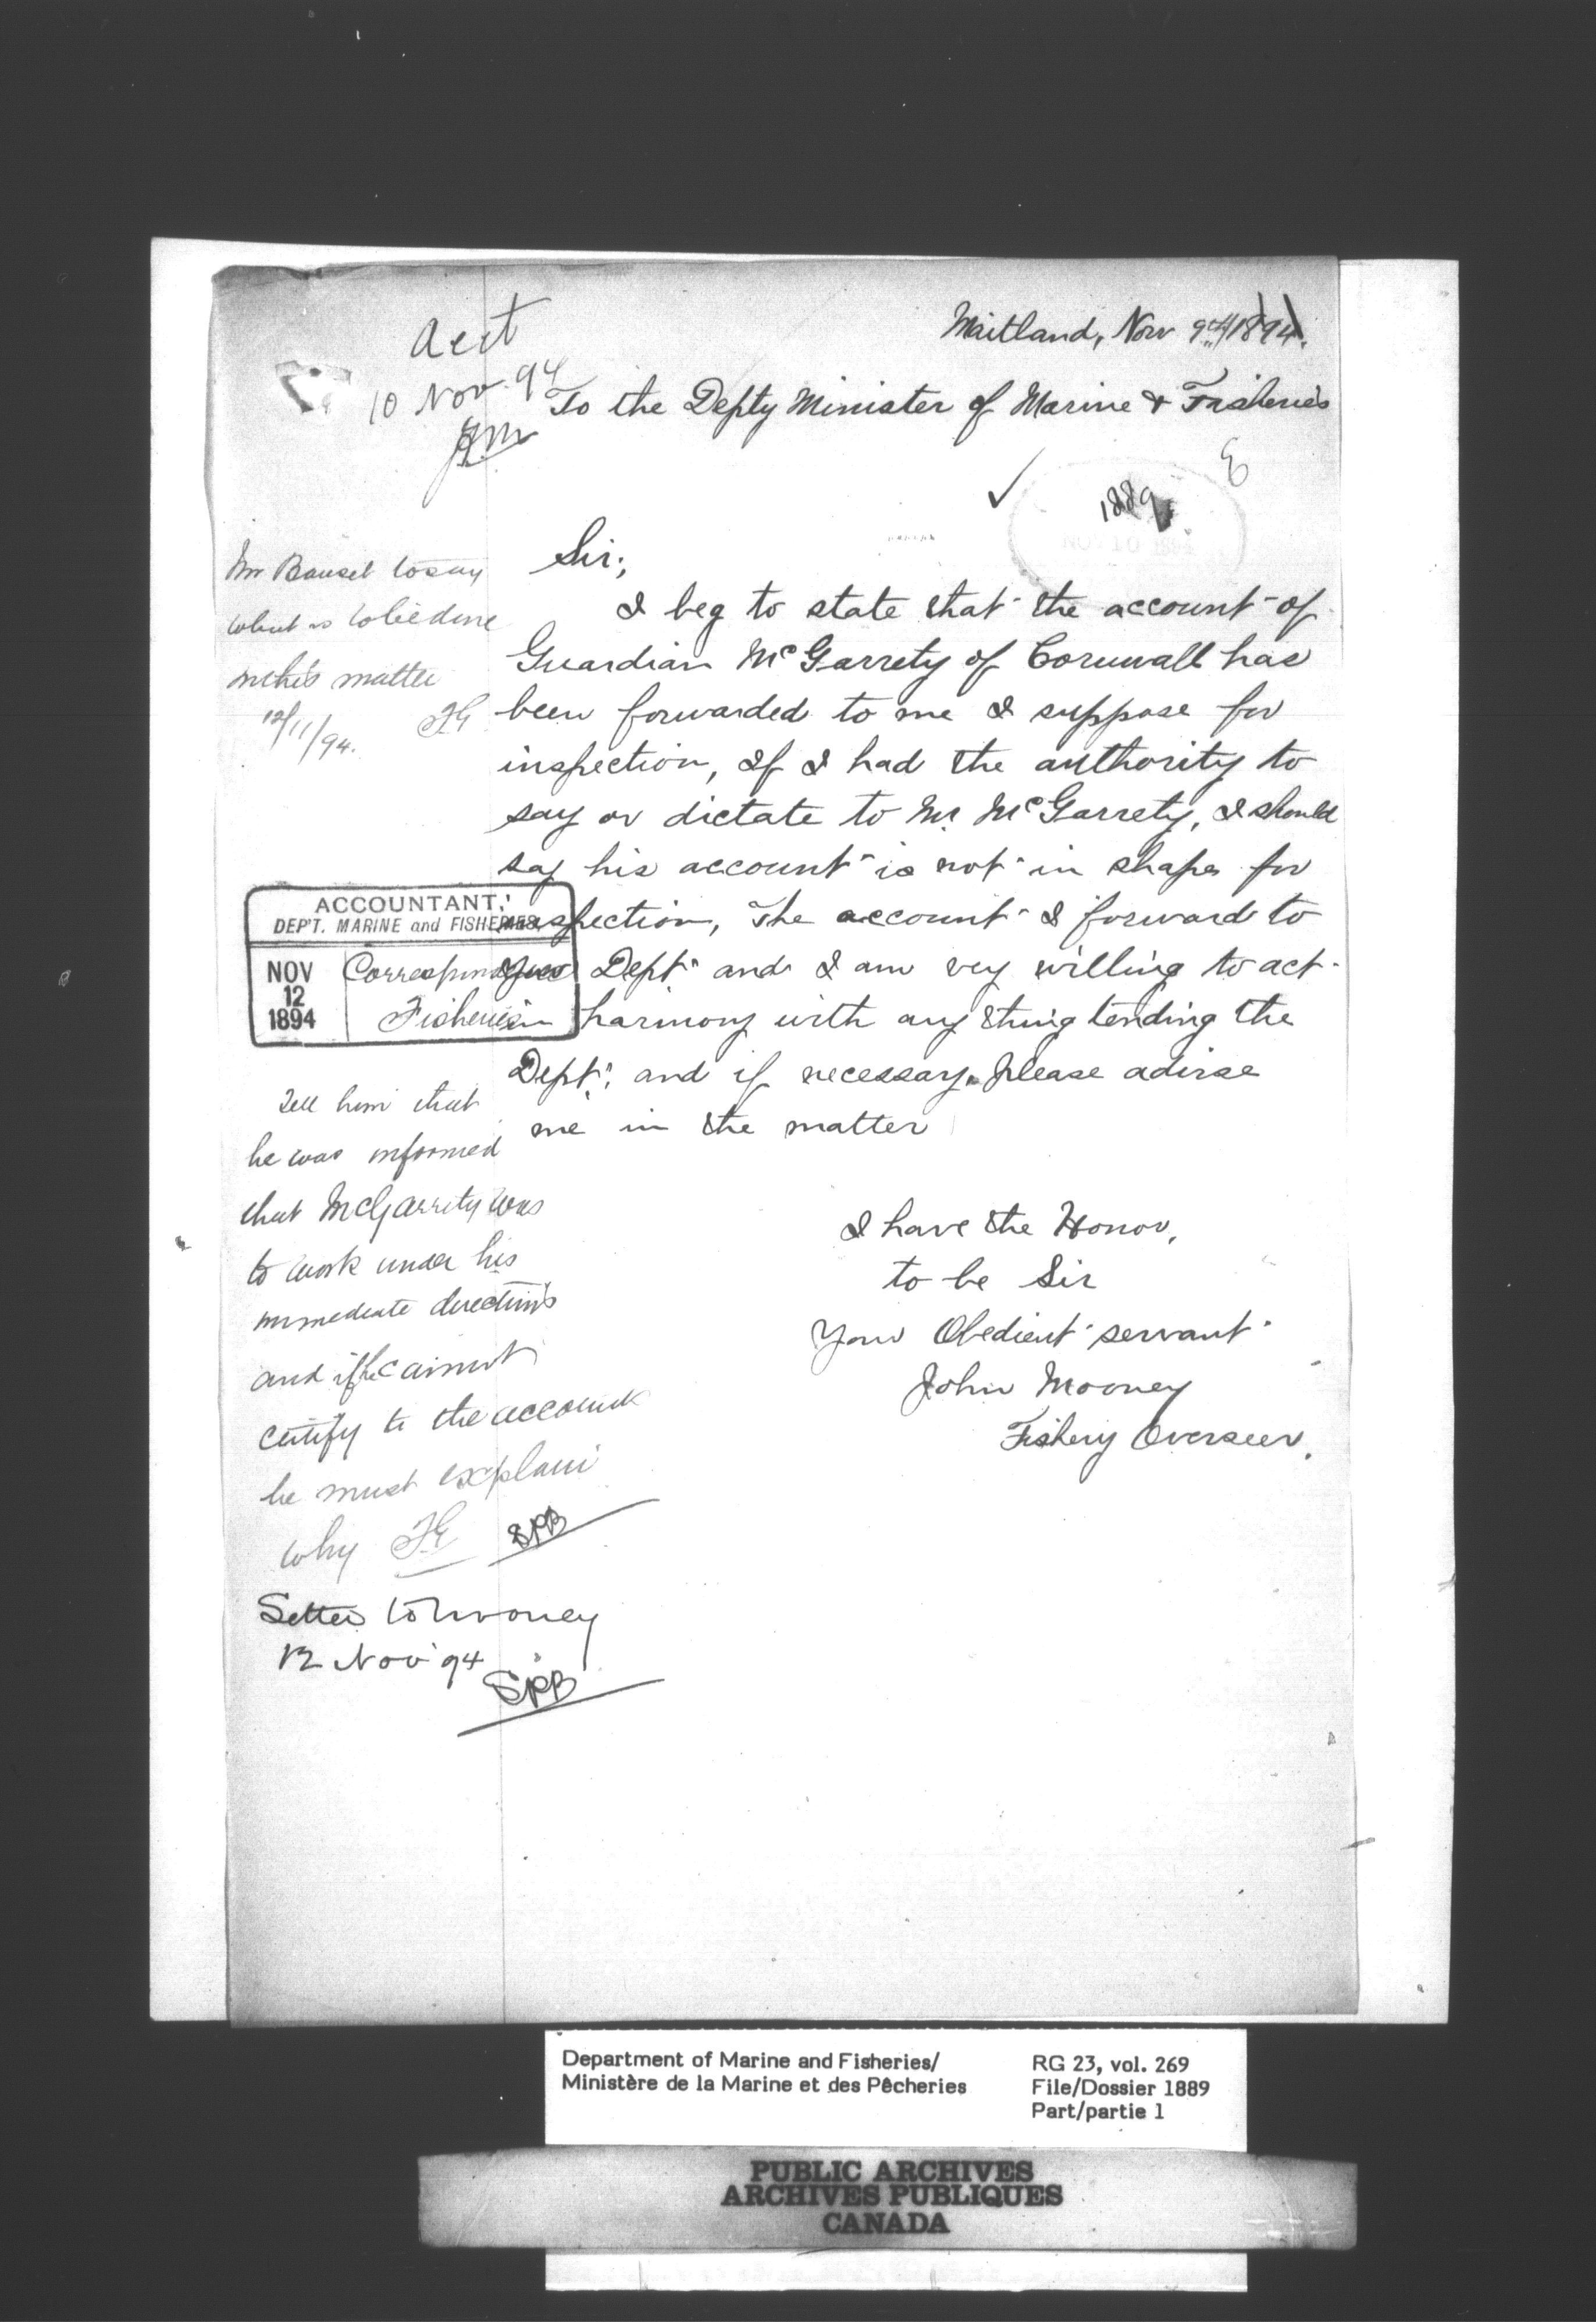 Acct
10 Nov. 94
Maitland, Nov 9th/1894.
To the Depty Minister of Marine & Fisheries
1889
NOV 10 1894
Sir;
I beg to state that the account of
Guardian McGarrety of Cornwall has
been forwarded to me I suppose for
inspection, If I had the authority to
say or dictate to Mr. McGarrety, I should
say his account is not in shape for
inspection, The account I forward to
your Dept. and I am very willing to act
in harmony with any thing tending the
Dept. and if necessary please advise
me in the matter
I have the Honor,
to be Sir
Your Obedient servant
John Mooney
Fishery Overseer.
Mr Bauset to say
what is to be done
in this matter
12/11/94.
ACCOUNTANT,
DEP'T. MARINE and FISHERIES
NOV
12
1894
Fisheries
Tell him that
he was informed
that McGarrity was
to work under his
immediate directions
and if he cannot
certify to the account
he must explain
why
SPB
Letter to Mooney
12 Nov 94
SPB
Department of Marine and Fisheries/
Ministère de la Marine et des Pêcheries
RG 23, vol. 269
File/Dossier 1889
Part/partie 1
PUBLIC ARCHIVES
ARCHIVES PUBLIQUES
CANADA